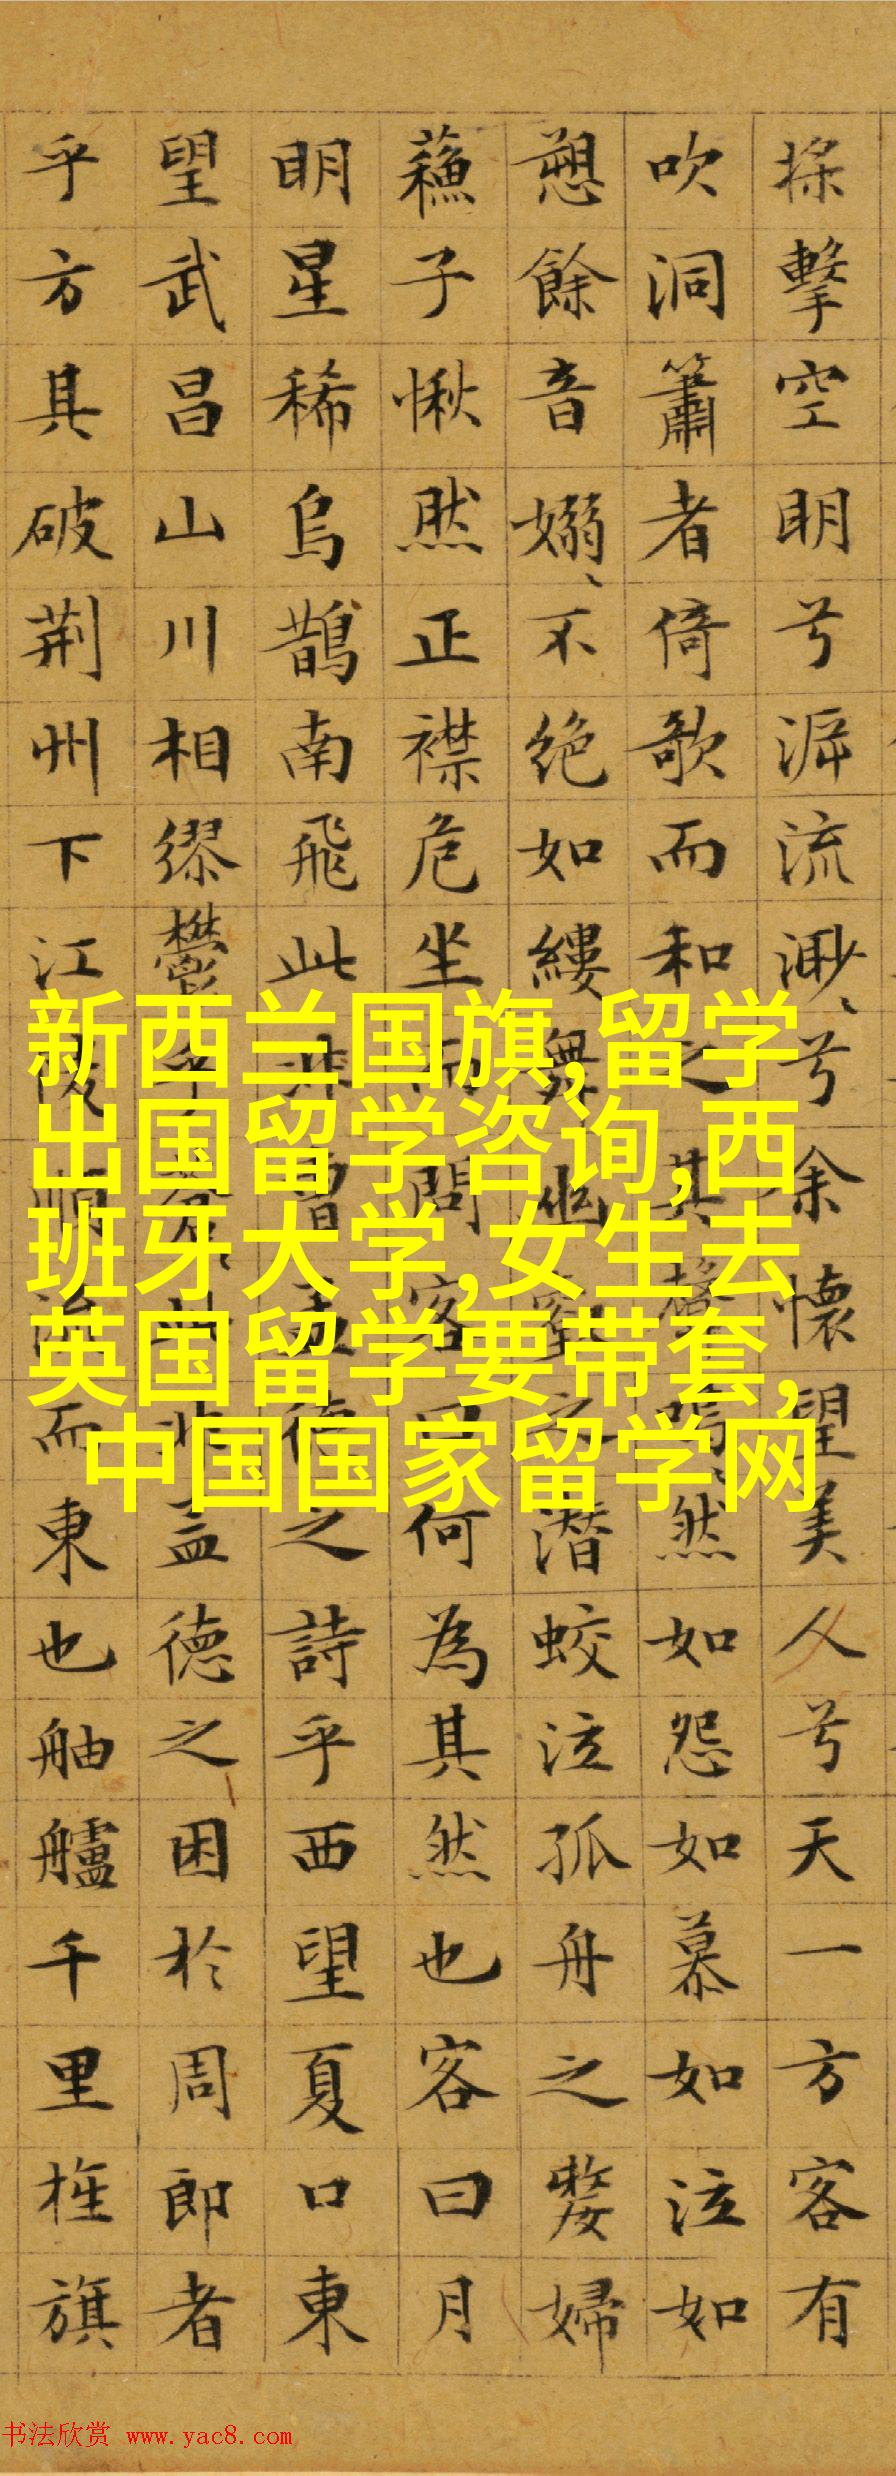 擊空明兮泝流渺、兮余懷望美人兮天一方客有
吹洞簫者倚歌而和之其聲嗚、然如怨如慕如泣如
愬餘音嫋、不絶如縷舞幽壑之潛蛟泣孤舟之嫠婦
蘓子愀然正襟危坐而問客曰何為其然也客曰月
明星稀烏鵲南飛此非曹孟德之詩乎西望夏口東
望武昌山川相繆鬱乎蒼、此非孟德之困於周郎者
乎方其破荆州下江陵順流而東也舳艫千里旌旗
新西兰国旗,留学
出国留学咨询,西
班牙大学,女生去
英国留学要带套,
中国国家留学网
书法欣赏 www.yac8.com